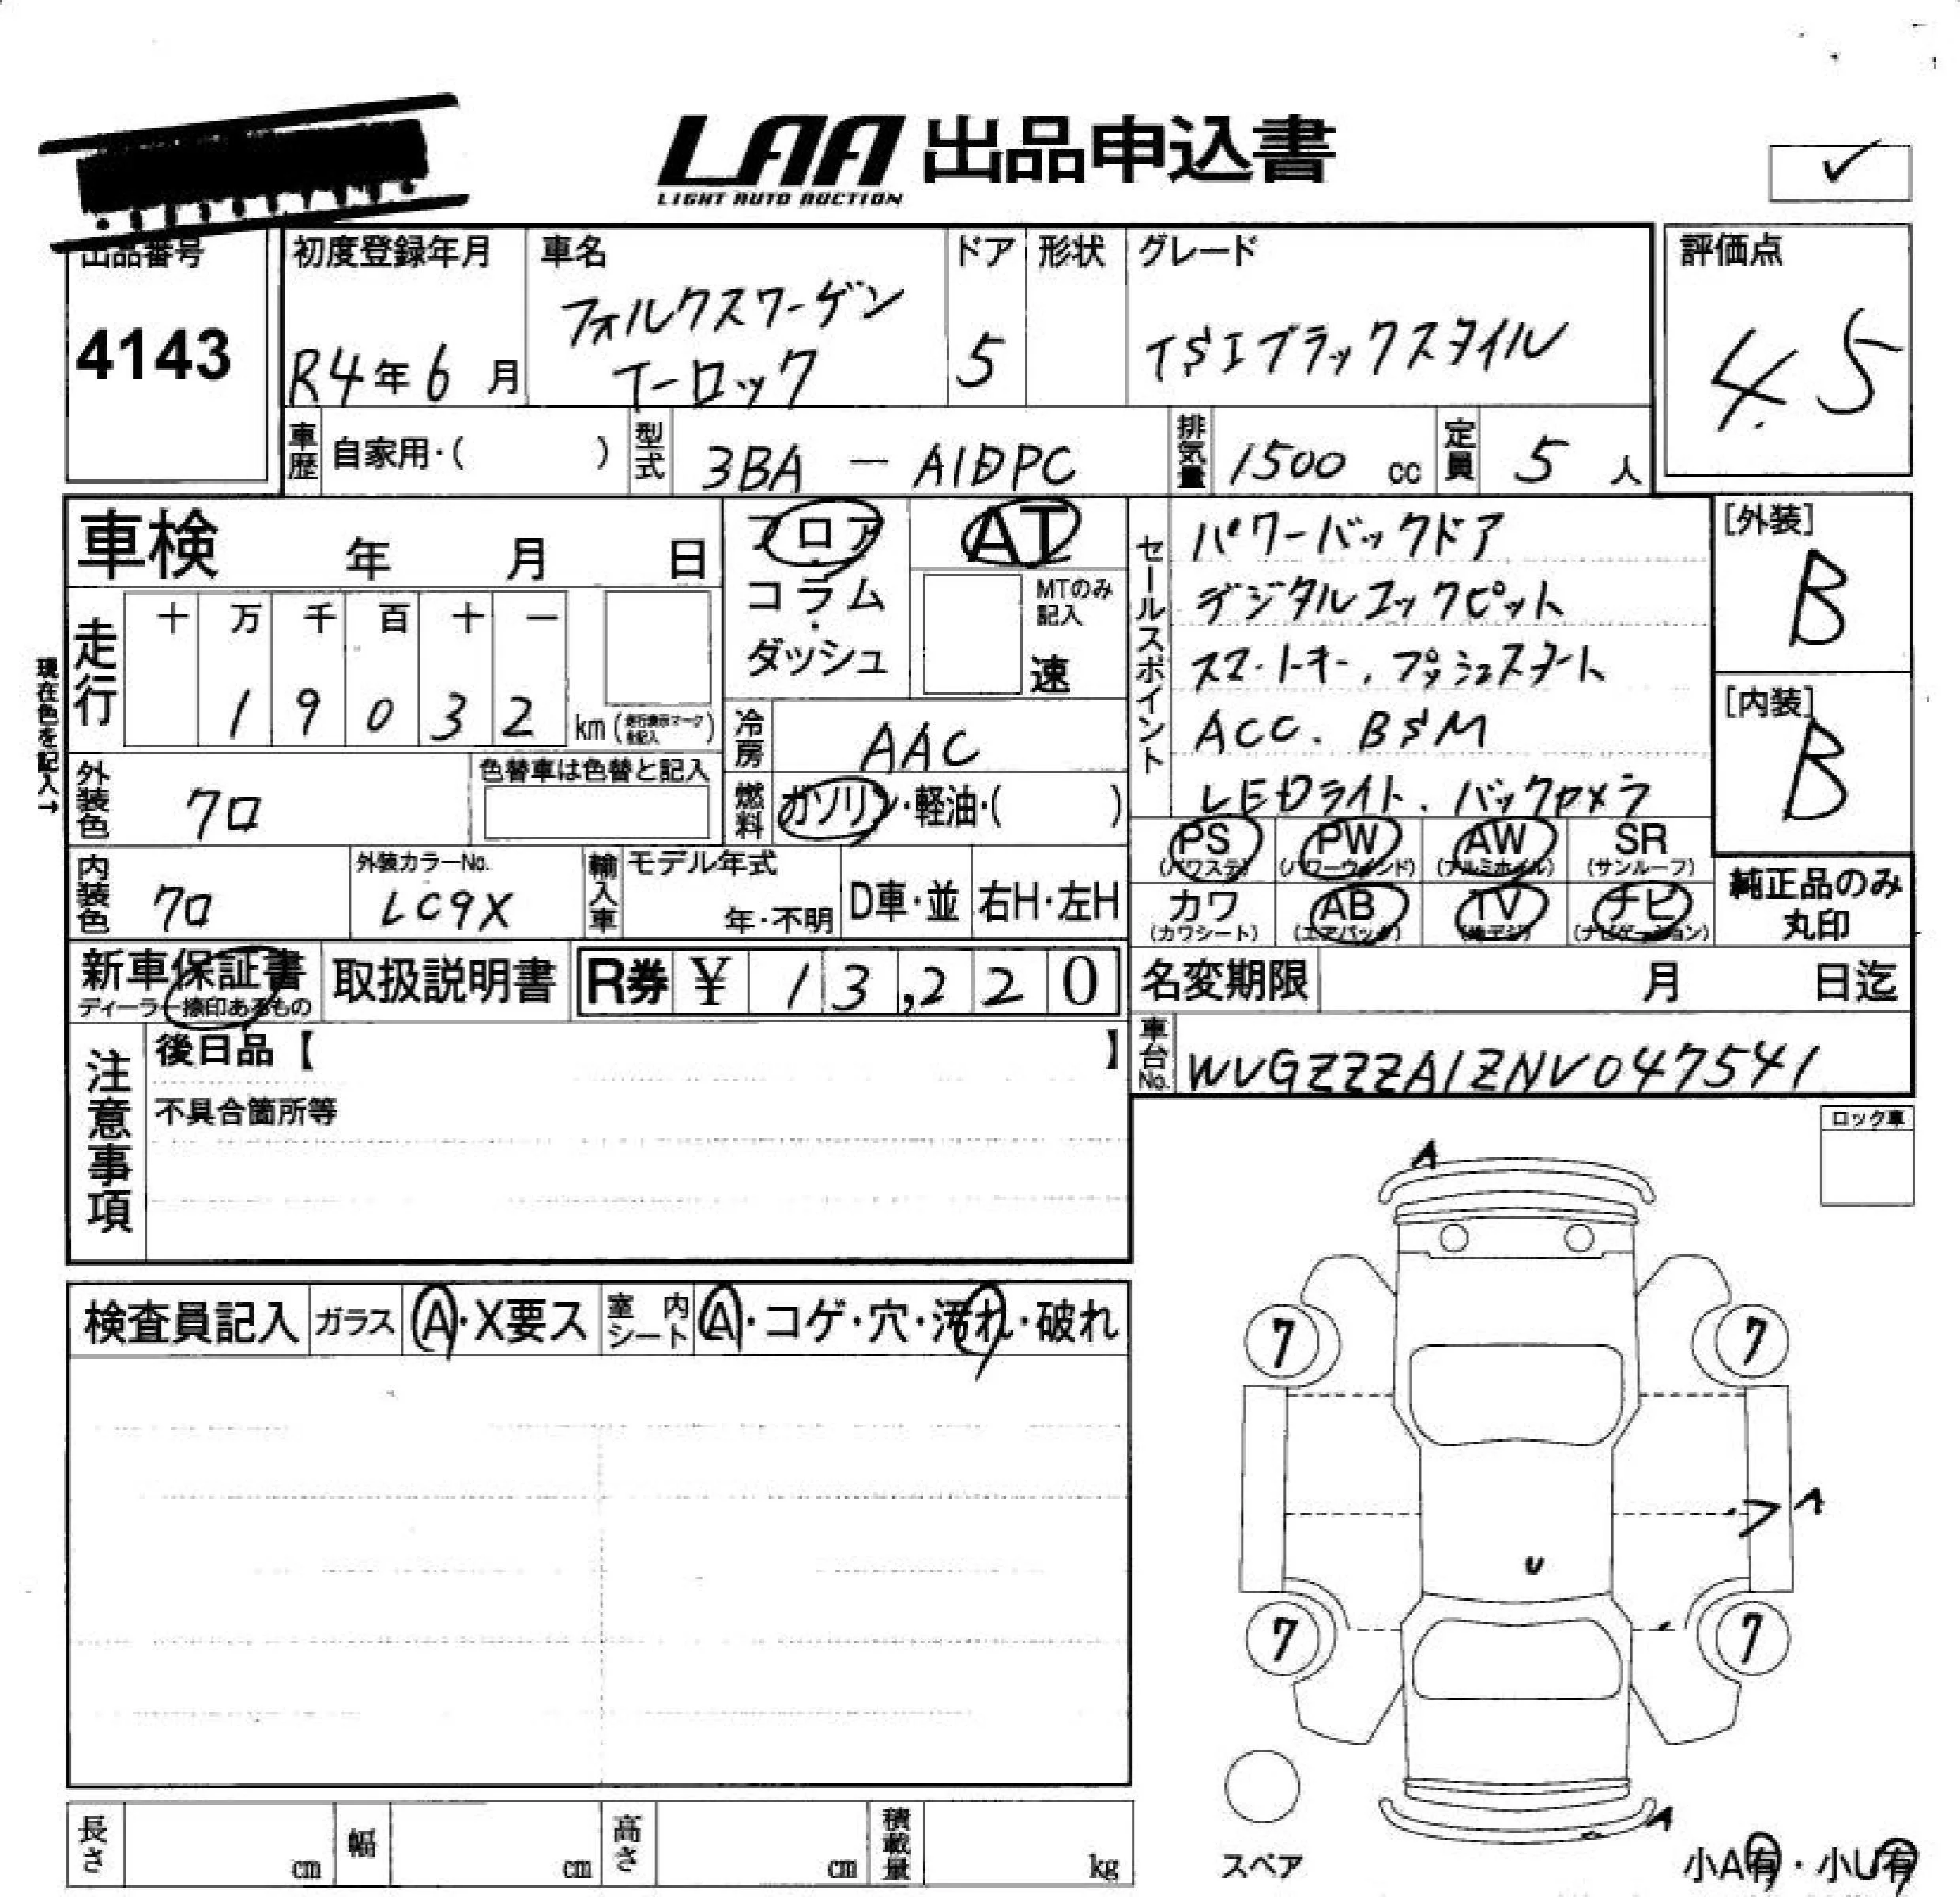 LAA 出品申込書
LIGHT AUTO AUCTION
出品番号
4143
初度登録年月
R4年6月
車名
フォルクスワーゲン
T-ロック
ドア
5
形状
グレード
TSIブラックスタイル
評価点
4.5
車歴 自家用・( )
型式 3BA - A1DPC
排気量 1500 cc
定員 5 人
車検 年 月 日
フロア
・
コラム
・
ダッシュ
AT
MTのみ記入
速
セールスポイント
パワーバックドア
デジタルコックピット
スマートキー、プッシュスタート
ACC. BSM
LEDライト、バックカメラ
[外装]
B
[内装]
B
現在色を記入→
走行
十 万 千 百 十 一
1 9 0 3 2 km (走行表示マークを記入)
冷房 AAC
外装色 クロ
色替車は色替と記入
燃料 ガソリン・軽油・( )
PS (パワステ)
PW (パワーウインド)
AW (アルミホイル)
SR (サンルーフ)
カワ (カワシート)
AB (エアバック)
TV (地デジ)
ナビ (ナビゲーション)
純正品のみ
丸印
内装色 クロ
外装カラーNo.
LC9X
輸入車
モデル年式
年・不明
D車・並
右H・左H
新車保証書
ディーラー捺印あるもの
取扱説明書
R券 ¥ 13,220
名変期限 月 日迄
車台No. WVGZZZA1ZNV047541
注意事項
後日品【 】
不具合箇所等
ロック車
検査員記入
ガラス A・X要ス
室内シート A・コゲ・穴・汚れ・破れ
A
7 7
ア A
U
7 7
A
スペア
小A有・小U有
長さ cm
幅 cm
高さ cm
積載量 kg